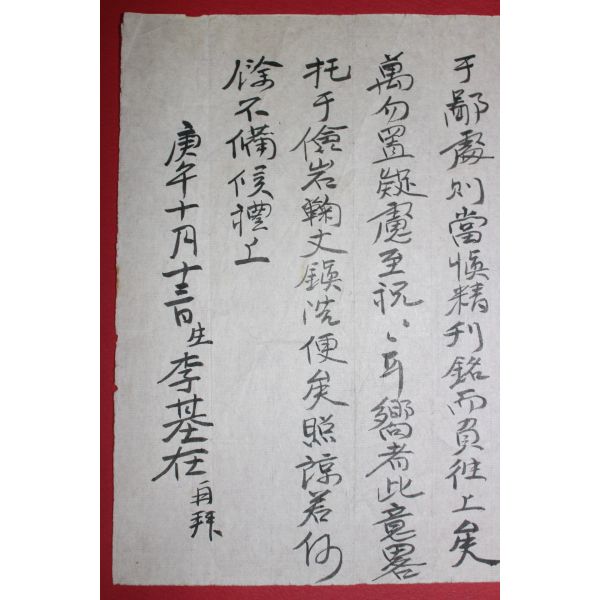 于鄙處則當愼精刊銘而負往上矣
萬勿置疑慮至祝〻耳嚮者此意畧
托于儉岩鞠丈鎂洗便矣照諒若何
餘不備候禮上
庚午十月十三日生李基在再拜